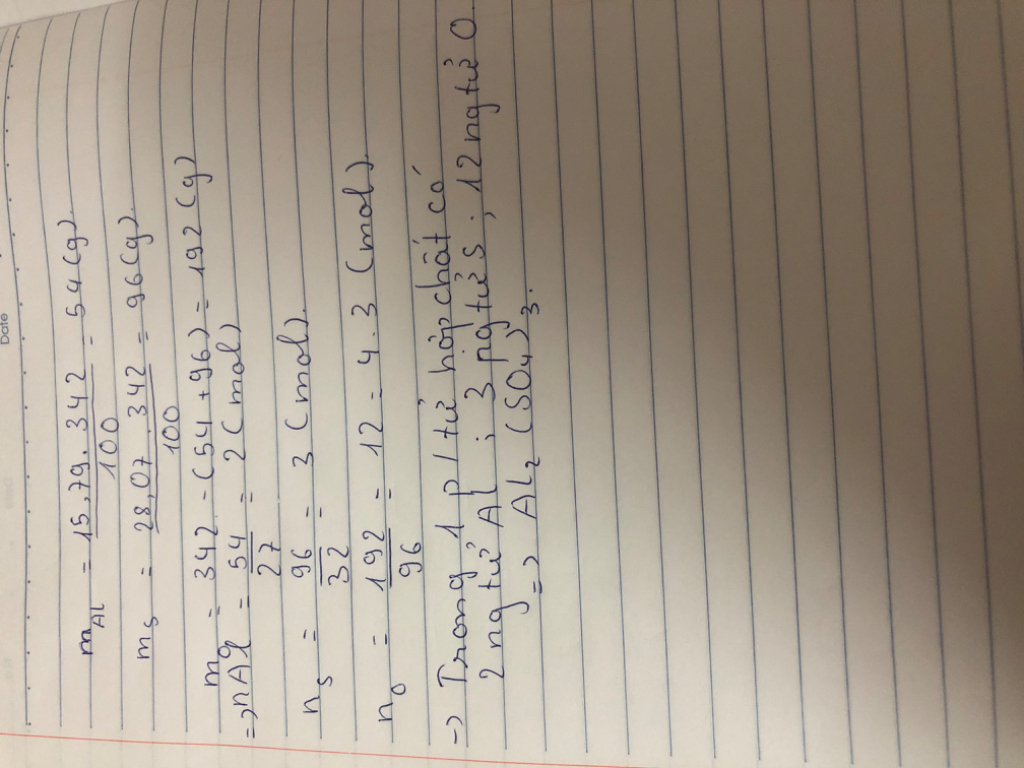 Date
m_Al = 15,79. 342 / 100 = 54(g).
m_s = 28,07. 342 / 100 = 96(g).
m_o = 342 - (54 + 96) = 192 (g)
=> nAl = 54 / 27 = 2 (mol)
n_s = 96 / 32 = 3 (mol).
n_o = 192 / 96 = 12 = 4. 3 (mol).
-> Trong 1 p/tử hợp chất có
2 ngtử Al ; 3 ngtử S ; 12 ngtử O
=> Al₂ (SO₄)₃.